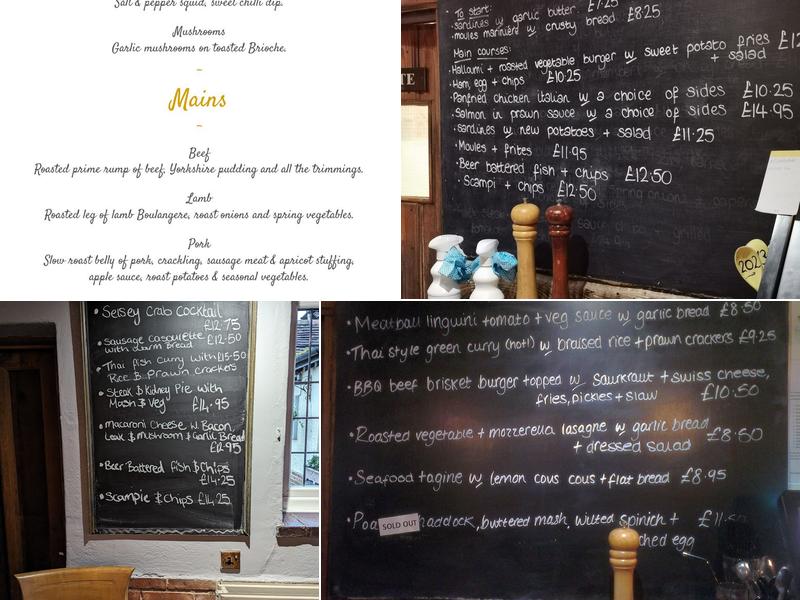 Salt & pepper squid, sweet chilli dip.
Mushrooms
Garlic mushrooms on toasted Brioche.
Mains
Beef
Roasted prime rump of beef, Yorkshire pudding and all the trimmings.
Lamb
Roasted leg of lamb Boulangere, roast onions and spring vegetables.
Pork
Slow roast belly of pork, crackling, sausage meat & apricot stuffing,
apple sauce, roast potatoes & seasonal vegetables.
To start:
• sardines w garlic butter. £7.25
• moules marinière w crusty bread £8.25
Main courses:
• Halloumi + roasted vegetable burger w sweet potato fries £12
+ salad
• Ham, egg + chips £10.25
• Panfried chicken italian w a choice of sides £10.25
• Salmon in prawn sauce w a choice of sides £14.95
• sardines w new potatoes + salad £11.25
• Moules + frites £11.95
• Beer battered fish + chips £12.50
• Scampi + chips £12.50
TE
• Selsey Crab Cocktail
£12.75
• Sausage Casourette £12.50
with warm bread
• Thai fish Curry with £15.50
Rice & Prawn crackers
• Steak & Kidney Pie with
Mash & Veg £14.95
• Macaroni Cheese W. Bacon,
Leak & Mushroom & Garlic Bread
£12.95
• Beer Battered fish & Chips
£14.25
• Scampie & Chips £14.25
• Meatball linguini tomato + veg sauce w garlic bread £8.50
• Thai style green curry (hot!) w braised rice + prawn crackers £9.25
• BBQ beef brisket burger topped w saurkraut + swiss cheese,
fries, pickles + slaw £10.50
• Roasted vegetable + mozzerella lasagne w garlic bread
+ dressed salad £8.50
• Seafood tagine w lemon cous cous + flat bread £8.95
• Poa SOLD OUT haddock, buttered mash, wilted spinich +
ched egg